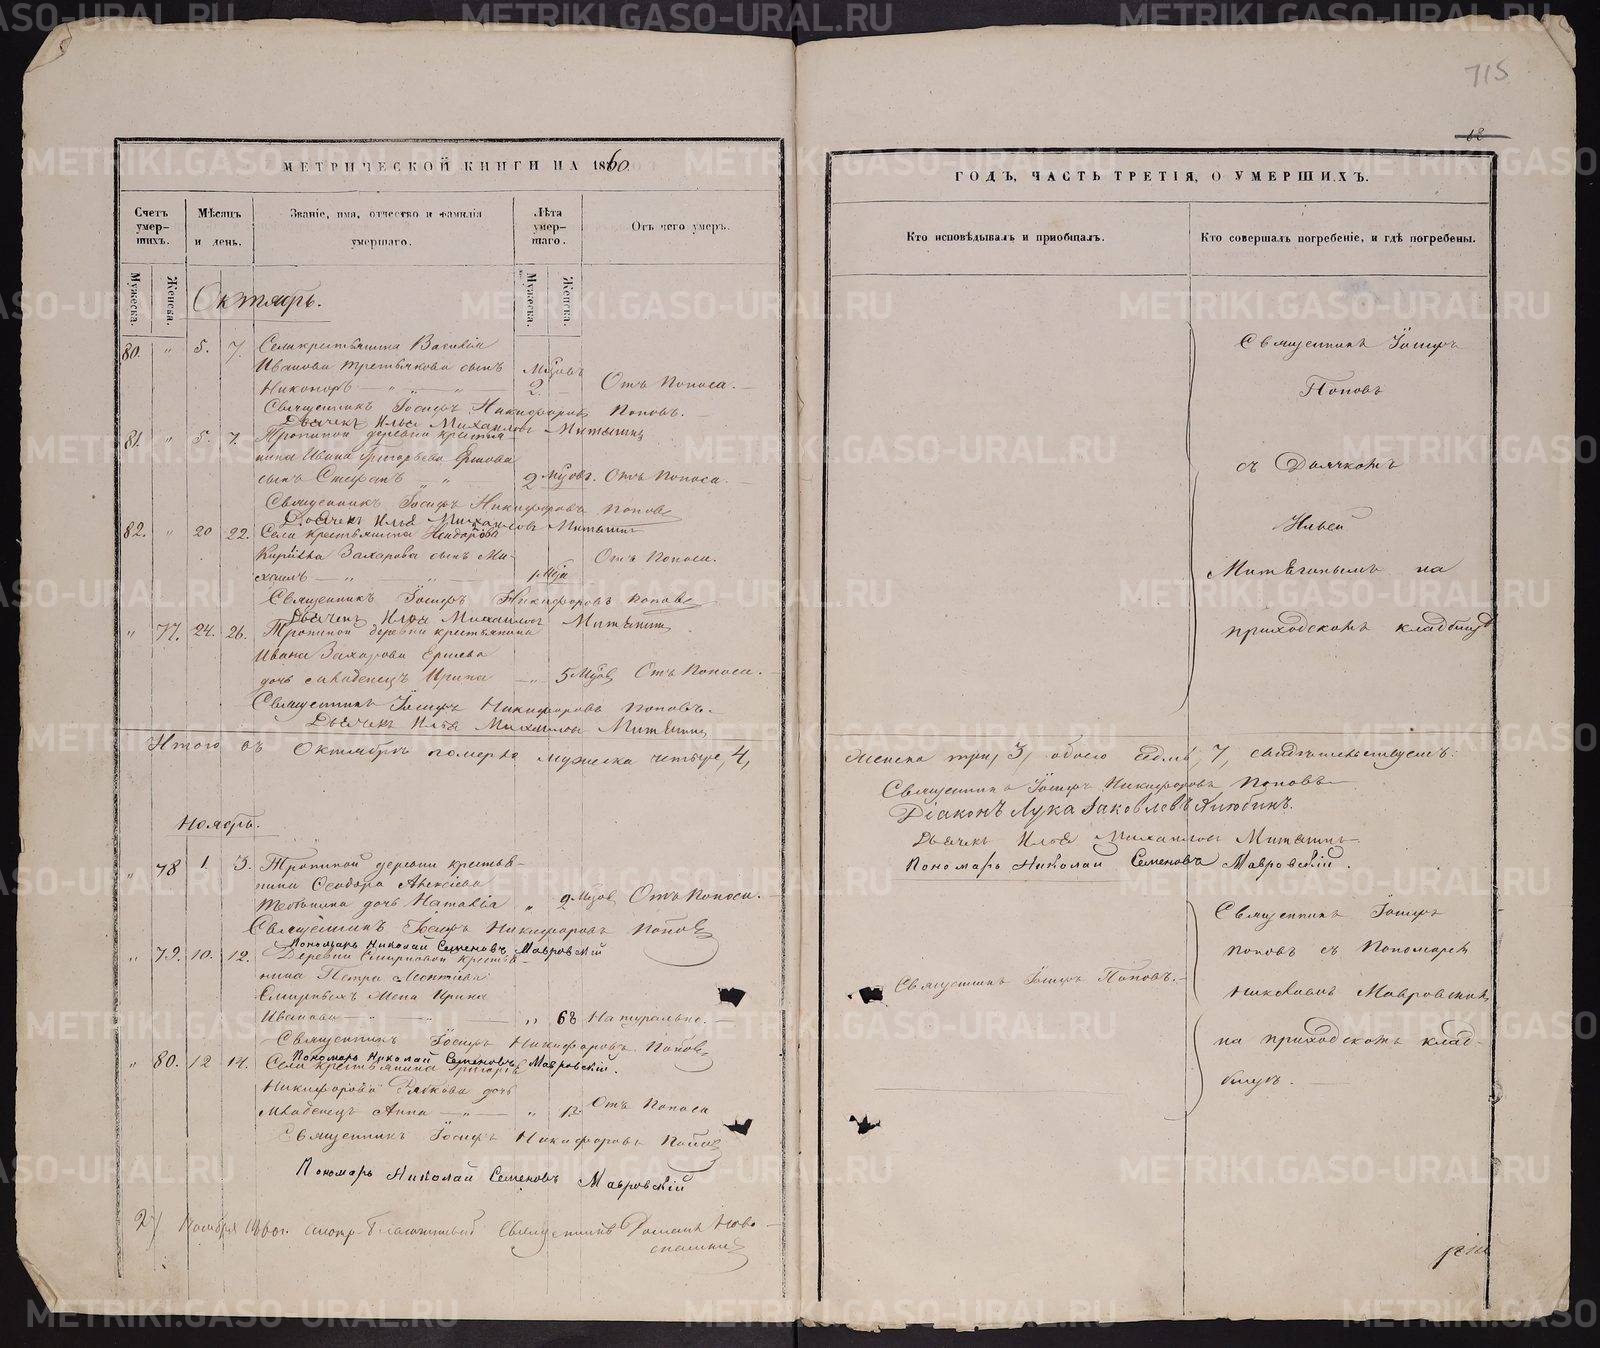 715
12
МЕТРИЧЕСКОЙ КНИГИ НА 1860
Счетъ умер-шихъ.
Мѣсяцъ и день.
Званіе, имя, отчество и фамилія умершаго.
Лѣта умер-шаго.
Отъ чего умеръ.
Мужеска.
Женска.
Мужеска.
Женска.
Октябрь.
80. " 5. 7. Села крестьянина Василія
Иванова Третьякова сынъ Мѣсяцовъ
Никоноръ — " — " — 2. Отъ поноса.
Священникъ Іосифъ Никифоровъ Поповъ.
Дьячекъ Илья Михаиловъ Митягинъ
81. " 5. 7. Тропиной деревни крестья
нина Ивана Григорьева Ершова
сынъ Стефанъ " " 2 Отъ поноса.
Священникъ Іосифъ Никифоровъ Поповъ
Дьячекъ Илья Михаиловъ Митягинъ
82. " 20 22. Села крестьянина
Захарова сынъ Ми- Отъ поноса.
хаилъ — " " 1
Священникъ Іосифъ Никифоровъ Поповъ
Дьячекъ Илья Михаиловъ Митягинъ
" 77. 24. 26. Тропиной деревни крестьянина
Ивана Захарова Ершова
дочь младенецъ Ирина — " 5 Отъ поноса.
Священникъ Іосифъ Никифоровъ Поповъ.
Дьячекъ Илья Михаиловъ Митягинъ
Итого въ Октябрѣ померло мужеска четыре, 4,
Ноябрь.
" 78 1. 3. Тропиной деревни крестья-
нина Ѳеодора Алексіева
дочь Наталія " 2 Отъ поноса.
Священникъ Іосифъ Никифоровъ Поповъ
Пономарь Николай Семеновъ Мавровскій
" 79. 10. 12. Деревни Смирновой крестья-
нина Петра Леонтіева
Смирныхъ жена Ирина
Иванова — " — " 68 Натурально.
Священникъ Іосифъ Никифоровъ Поповъ
Пономарь Николай Семеновъ Мавровскій.
" 80. 12 14. Села крестьянина Григорія
Никифорова дочь
младенецъ Анна — " — " 12 Отъ поноса
Священникъ Іосифъ Никифоровъ Поповъ
Пономарь Николай Семеновъ Мавровскій
Ноября 1860г. Благочинный Священникъ
ГОДЪ, ЧАСТЬ ТРЕТІЯ, О УМЕРШИХЪ.
Кто исповѣдывалъ и пріобщалъ.
Кто совершалъ погребеніе, и гдѣ погребены.
Священникъ Іосифъ
Поповъ
съ Дьячкомъ
Ильей
Митягинымъ на
приходскомъ кладбищѣ
женска три, 3, обоего седмь, 7, свидѣтельствуемъ:
Священникъ Іосифъ Никифоровъ Поповъ
Діаконъ Лука Іаковлевъ
Дьячекъ Илья Михаиловъ Митягинъ
Пономарь Николай Семеновъ Мавровскій.
Священникъ Іосифъ
Поповъ съ Пономаремъ
Священникъ Іосифъ Поповъ.
Николаемъ Мавровскимъ
на приходскомъ клад-
бищѣ.
METRIKI.GASO-URAL.RU